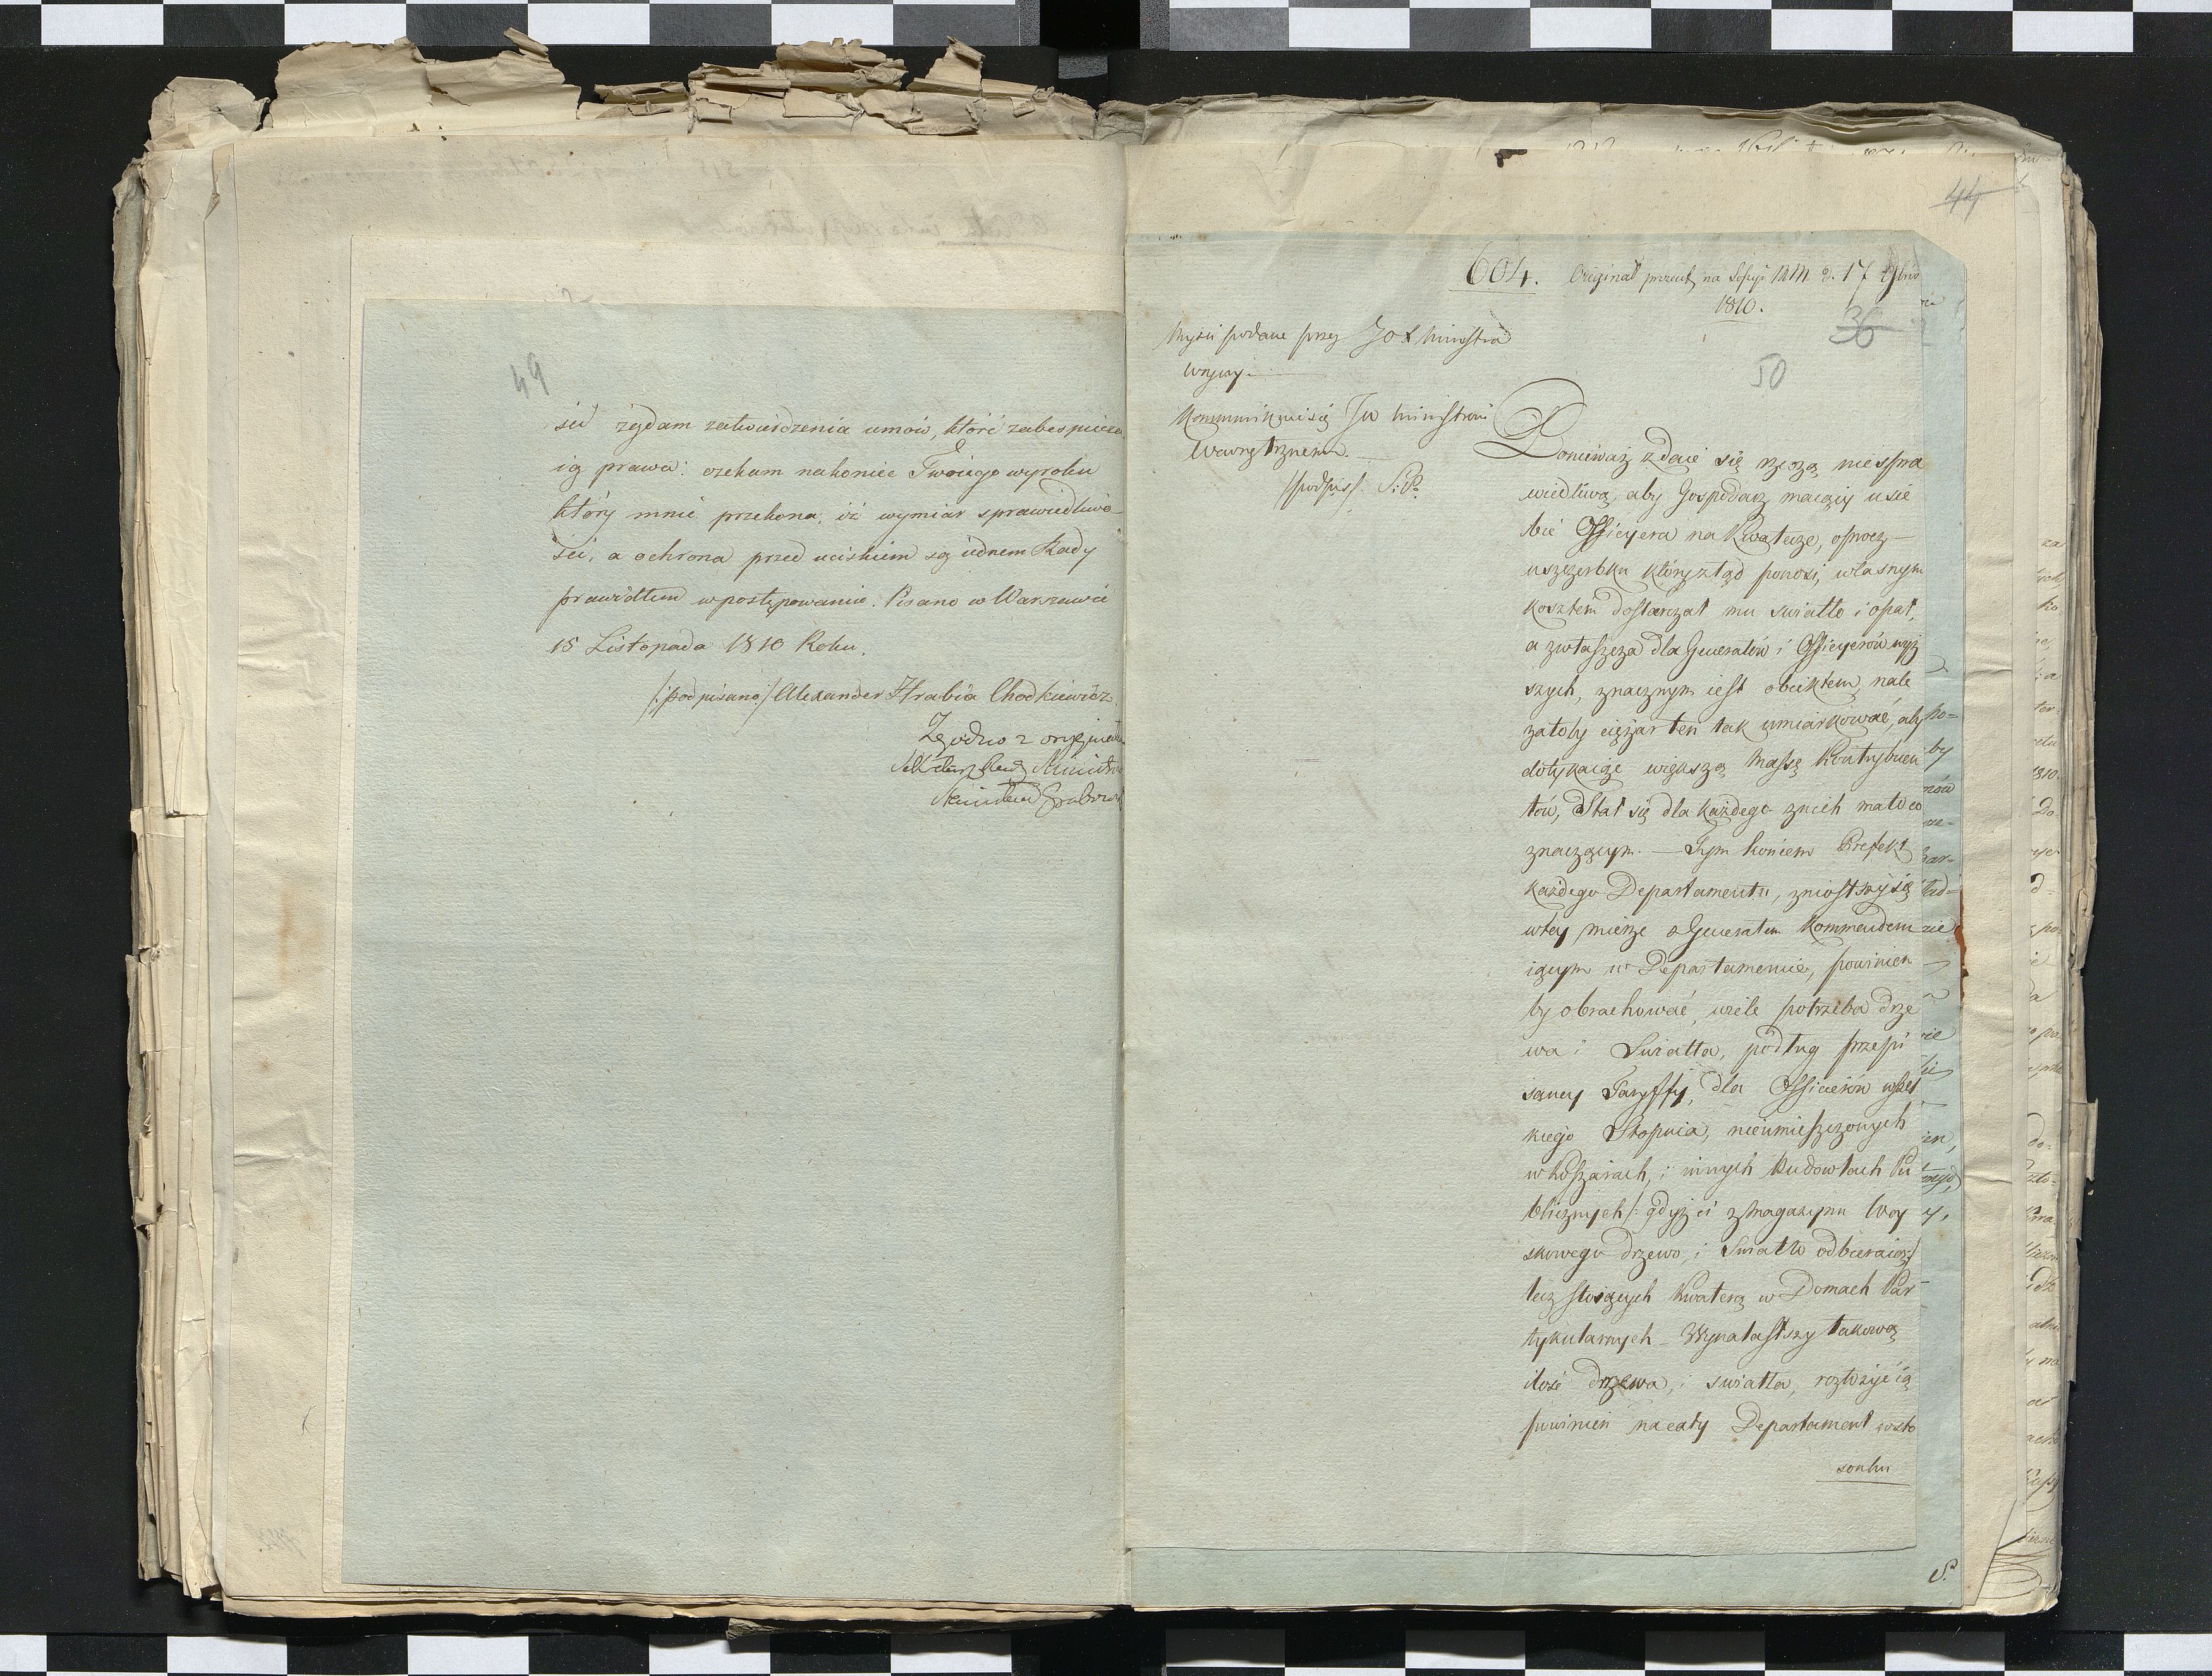 49
ści żądam zatwierdzenia umów, które zabespiecza
ią prawa: czekam nakoniec Twoiego wyroku
który mnie przekona, iż wymiar sprawiedliwo-
ści, a ochrona przed uciskiem są iednem Rady
prawidłem w postępowaniu. Pisano w Warszawie
15 Listopada 1810 Roku.
/:podpisano:/ Alexander Hrabia Chodkiewicz
Zgodno z oryginałem
Sekretarz Rady Ministrów
44
604. Originał na Sessyi d. 17 9bris
1810.
36
50
Myśli podane przez JO X Ministra
Woyny.
Kommunikuie się JW Ministrowi
Wewnętrznemu.
/podpis/. S. P.
Ponieważ zdaie się rzeczą niespra
wiedliwą, aby Gospodarz maiący u sie
bie Officyera na Kwaterze, oprocz
uszczerbku który ztąd ponosi, własnym
kosztem dostarczał mu swiatło i opał,
a zwłaszcza dla Generałów i Officyerów wyż
szych, znacznym iest obiektem, nale
załoby ciężar ten tak umiarkować, aby
dotykaiąc większą Massę Kontrybuen
tów, Stał się dla każdego znich mało co
znaczącym. — Tym końcem Prefekt
każdego Departamentu, zniosłszy się
wtey mierze z Generałem Kommenderu
iącym w Departamencie, powinien
by obrachować, wiele potrzeba drze
wa i Swiatła, podług przepi
saney Taryffy, dla Officierów wszel
kiego Stopnia, nieumieszczonych
w koszarach, i innych Budowlach Pu
blicznych /: gdyż ci z Magazynu Woy
skowego drzewo, i Swiatło odbieraią:/
lecz stoiących Kwaterą w Domach Par
tykularnych – Wynalazłszy takową
ilość drzewa, i swiatła, rozłożyć ią
powinien na cały Departament wsto
sonku